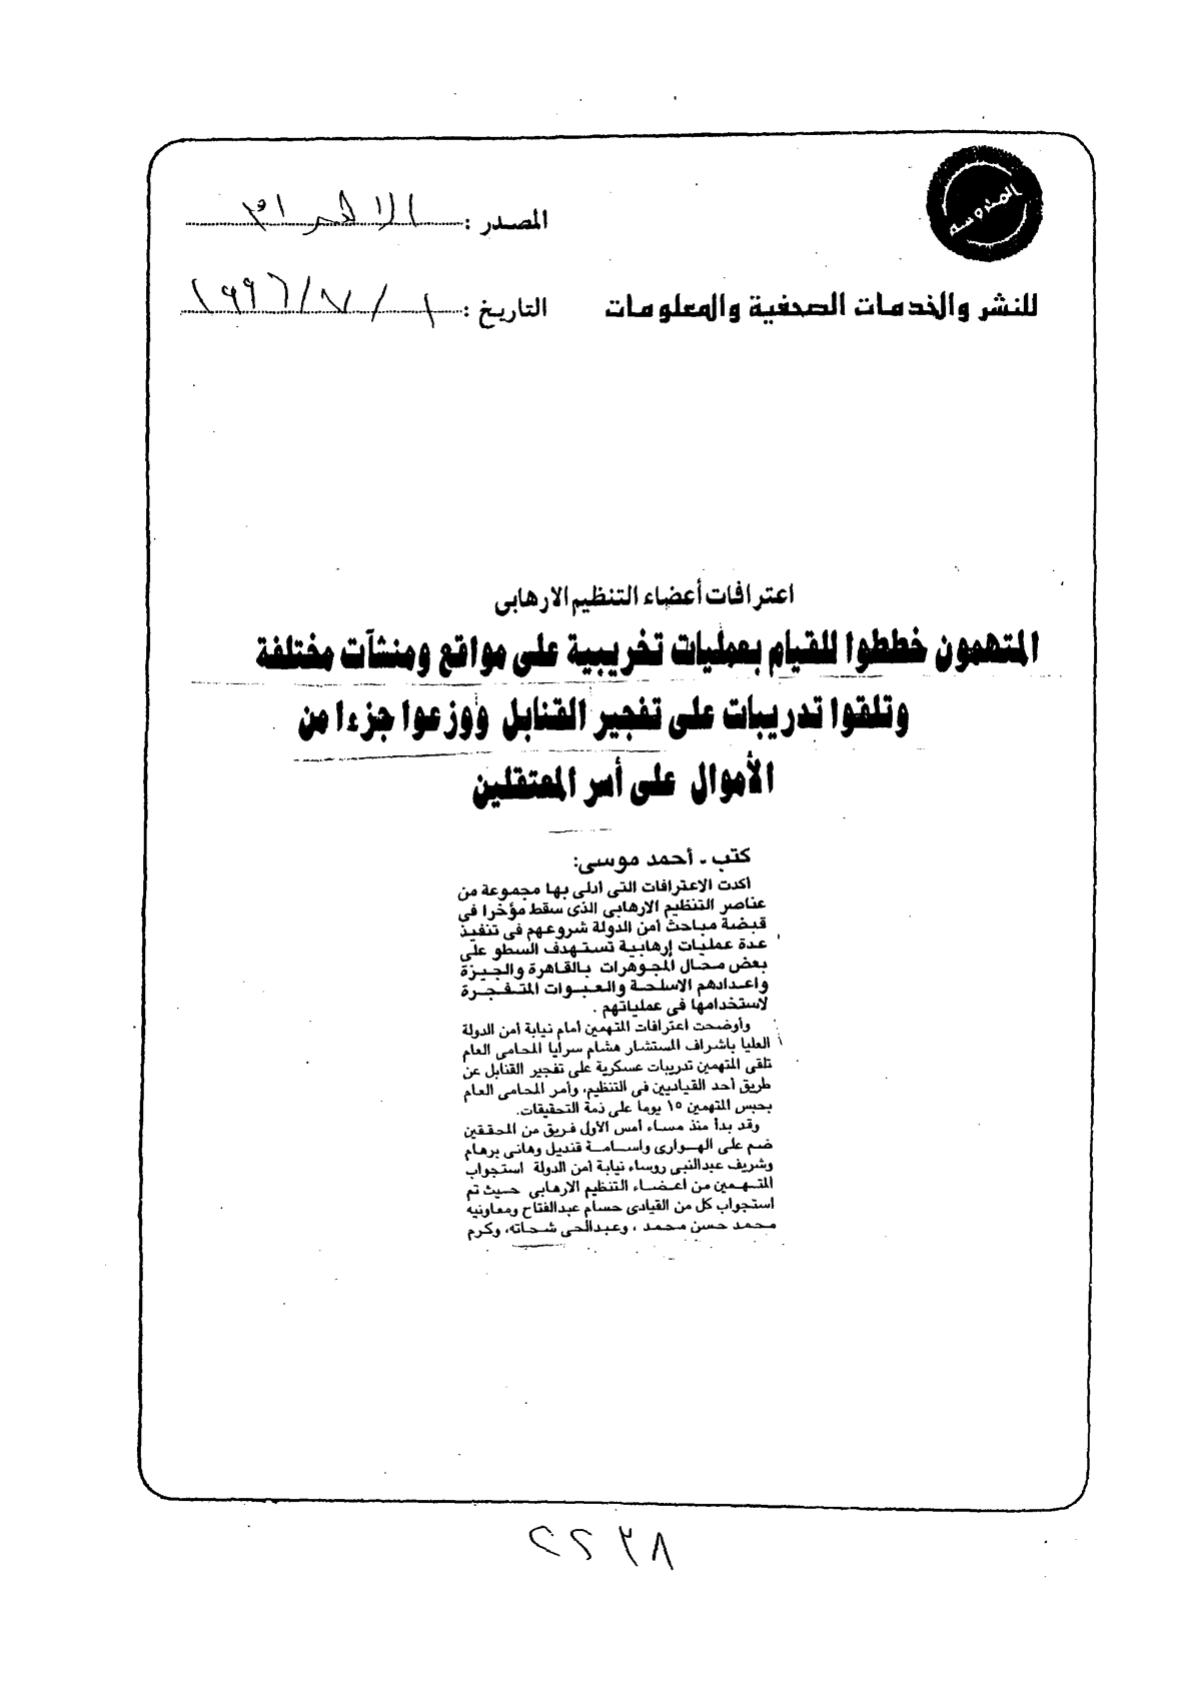 المحروسة
المصدر : الاهرام
للنشر والخدمات الصحفية والمعلومات
التاريخ : ١ / ٧ / ١٩٩٦
اعترافات أعضاء التنظيم الارهابى
المتهمون خططوا للقيام بعمليات تخريبية على مواقع ومنشآت مختلفة
وتلقوا تدريبات على تفجير القنابل ووزعوا جزءا من
الأموال على أسر المعتقلين
كتب ـ أحمد موسى:
أكدت الاعترافات التى ادلى بها مجموعة من
عناصر التنظيم الارهابى الذى سقط مؤخرا فى
قبضة مباحث أمن الدولة شروعهم فى تنفيذ
عدة عمليات إرهابية تستهدف السطو على
بعض محال المجوهرات بالقاهرة والجيزة
واعدادهم الاسلحة والعبوات المتفجرة
لاستخدامها فى عملياتهم .
وأوضحت اعترافات المتهمين أمام نيابة أمن الدولة
العليا باشراف المستشار هشام سرايا المحامى العام
تلقى المتهمين تدريبات عسكرية على تفجير القنابل عن
طريق أحد القياديين فى التنظيم، وأمر المحامى العام
بحبس المتهمين ١٥ يوما على ذمة التحقيقات.
وقد بدأ منذ مساء أمس الأول فريق من المحققين
ضم على الهوارى واسامة قنديل وهانى برهام
وشريف عبدالنبى روساء نيابة أمن الدولة استجواب
المتهمين من اعضاء التنظيم الارهابى حيث تم
استجواب كل من القيادى حسام عبدالفتاح ومعاونيه
محمد حسن محمد ، وعبدالحى شحاته، وكرم